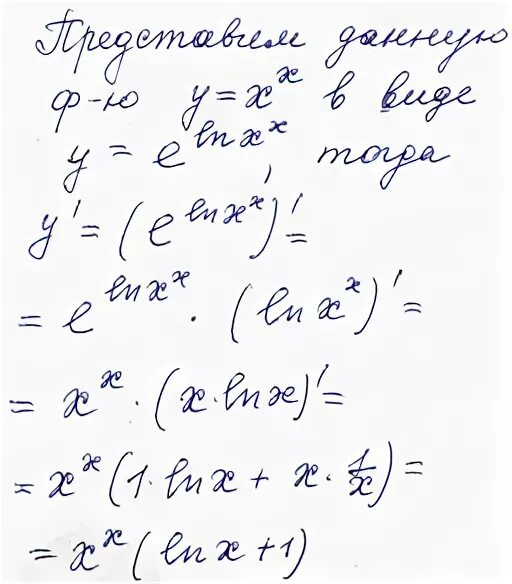 Представим данную
ф-ю y = x^x в виде
y = e^{ln x^x}, тогда
y' = (e^{ln x^x})' =
= e^{ln x^x} · (ln x^x)' =
= x^x · (x · ln x)' =
= x^x (1 · ln x + x · 1/x) =
= x^x (ln x + 1)